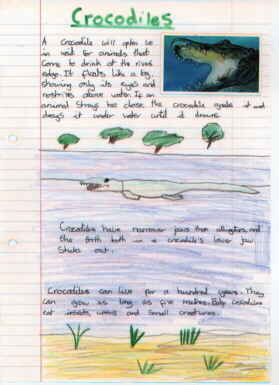 Crocodiles
A crocodile will often lie
in wait for animals that
come to drink at the rivers
edge. It floats like a log,
showing only its eyes and
nostrils above water. If an
animal strays too close, the crocodile grabs it and
drags it under water until it drowns.
Crocodiles have narrower jaws than alligators, and
the forth tooth in a crocodile's lower jaw
sticks out.
Crocodiles can live for a hundred years. They
can grow as long as five metres. Baby crocodiles
eat insects, worms and small creatures.